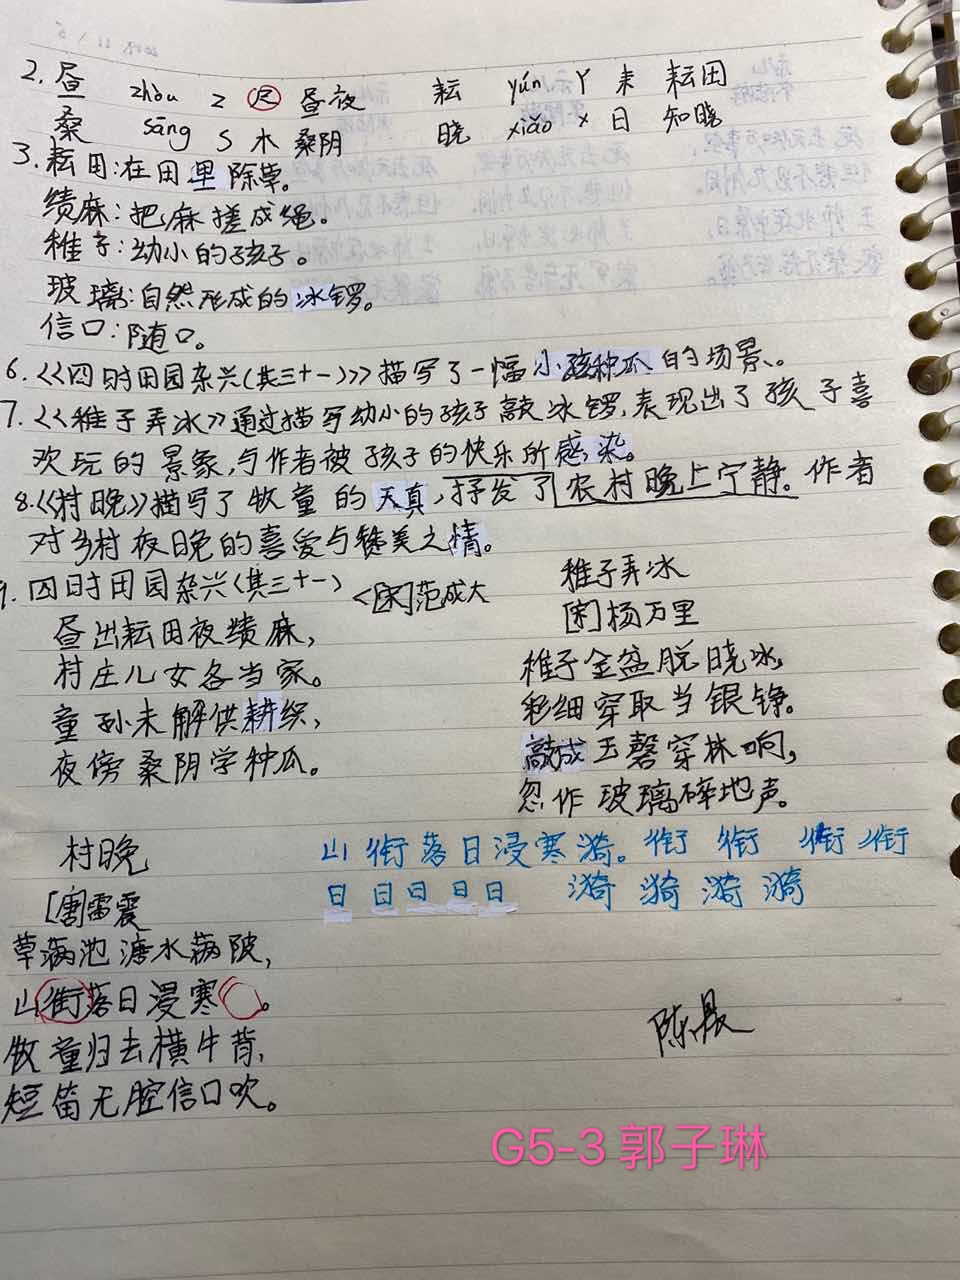 2. 昼 zhòu Z 尺 昼夜 耘 yún Y 耒 耘田
桑 sāng S 木 桑阴 晓 xiǎo X 日 知晓
3. 耘田:在田里除草。
绩麻:把麻搓成绳。
稚子:幼小的孩子。
玻璃:自然形成的冰锣。
信口:随口。
6.《四时田园杂兴(其三十一)》描写了一幅小孩种瓜的场景。
7.《稚子弄冰》通过描写幼小的孩子敲冰锣,表现出了孩子喜
欢玩的景象,与作者被孩子的快乐所感染。
8.《村晚》描写了牧童的天真,抒发了农村晚上宁静.作者
对乡村夜晚的喜爱与赞美之情。
9. 四时田园杂兴(其三十一) <[宋]范成大
昼出耘田夜绩麻,
村庄儿女各当家。
童孙未解供耕织,
夜傍桑阴学种瓜。
稚子弄冰
[宋]杨万里
稚子金盆脱晓冰,
彩细穿取当银铮。
敲成玉磬穿林响,
忽作玻璃碎地声。
村晚
[唐]雷震
草满池塘水满陂,
山衔落日浸寒 。
牧童归去横牛背,
短笛无腔信口吹。
山衔落日浸寒漪。衔 衔 衔 衔
日 日 日 日 日 漪 漪 漪 漪
G5-3 郭子琳